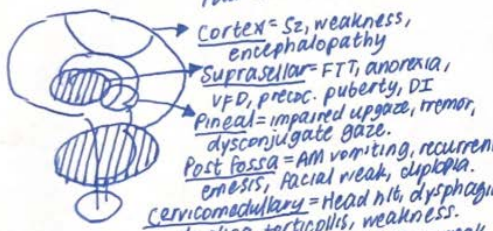 Cortex = Sz, weakness,
encephalopathy
Suprasellar = FTT, anorexia,
VFD, precoc. puberty, DI
Pineal = impaired upgaze, tremor,
dysconjugate gaze.
Post Fossa = AM vomiting, recurrent
emesis, facial weak, diplopia.
Cervicomedullary = Head tilt, dysphagia
torticollis, weakness.